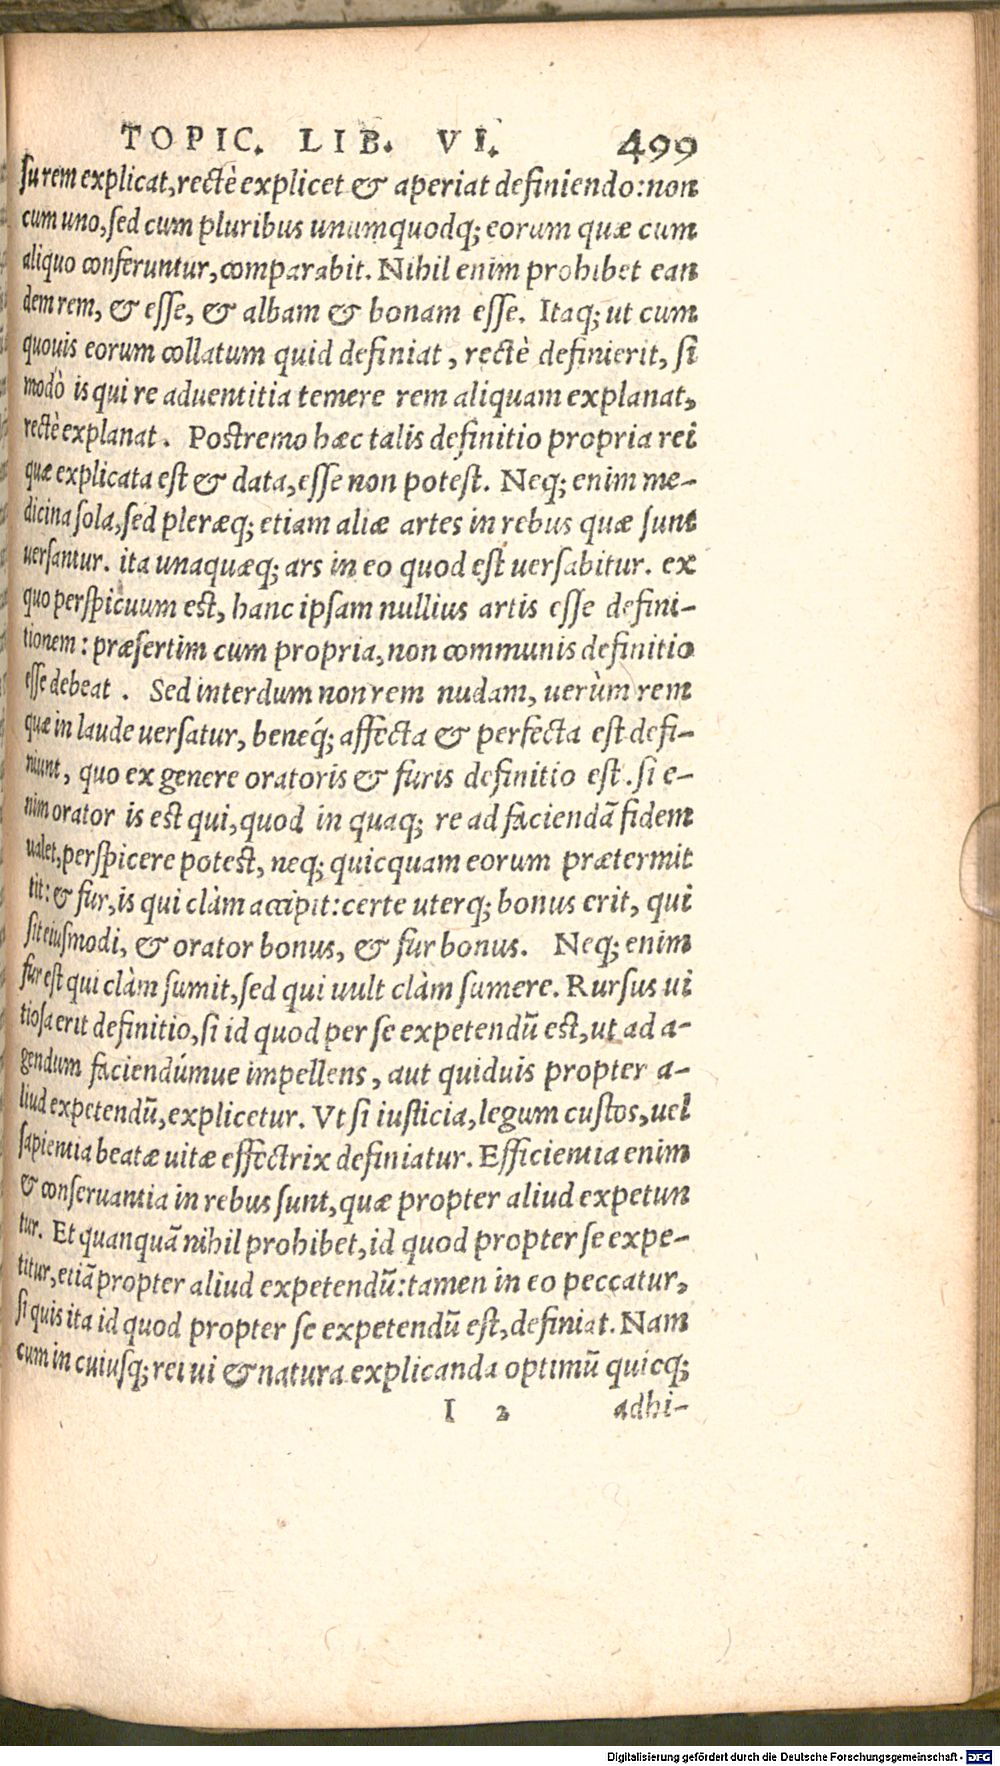 TOPIC. LIB. VI. 499
su rem explicat, rectè explicet & aperiat definiendo: non
cum uno, sed cum pluribus unumquodq; eorum quæ cum
aliquo conferuntur, comparabit. Nihil enim prohibet ean
dem rem, & esse, & albam & bonam esse. Itaq; ut cum
quouis eorum collatum quid definiat, rectè definierit, si
modò is qui re aduentitia temere rem aliquam explanat,
rectè explanat. Postremo hæc talis definitio propria rei
quæ explicata est & data, esse non potest. Neq; enim me-
dicina sola, sed pleræq; etiam aliæ artes in rebus quæ sunt
uersantur. ita unaquæq; ars in eo quod est uersabitur. ex
quo perspicuum est, hanc ipsam nullius artis esse defini-
tionem: præsertim cum propria, non communis definitio
esse debeat. Sed interdum non rem nudam, uerùm rem
quæ in laude uersatur, beneq́; affecta & perfecta est defi-
niunt, quo ex genere oratoris & furis definitio est. si e-
nim orator is est qui, quod in quaq; re ad faciendā fidem
ualet, perspicere potest, neq; quicquam eorum prætermit
tit: & fur, is qui clàm accipit: certe uterq; bonus erit, qui
sit eiusmodi, & orator bonus, & fur bonus. Neq; enim
fur est qui clàm sumit, sed qui uult clàm sumere. Rursus ui
tiosa erit definitio, si id quod per se expetendū est, ut ad a-
gendum faciendúmue impellens, aut quiduis propter a-
liud expetendū, explicetur. Vt si iusticia, legum custos, uel
sapientia beatæ uitæ effectrix definiatur. Efficientia enim
& conseruantia in rebus sunt, quæ propter aliud expetun
tur. Et quanquā nihil prohibet, id quod propter se expe-
titur, etiā propter aliud expetendū: tamen in eo peccatur,
si quis ita id quod propter se expetendū est, definiat. Nam
cum in cuiusq; rei ui & natura explicanda optimū quicq;
I 2 adhi-
Digitalisierung gefördert durch die Deutsche Forschungsgemeinschaft - DFG